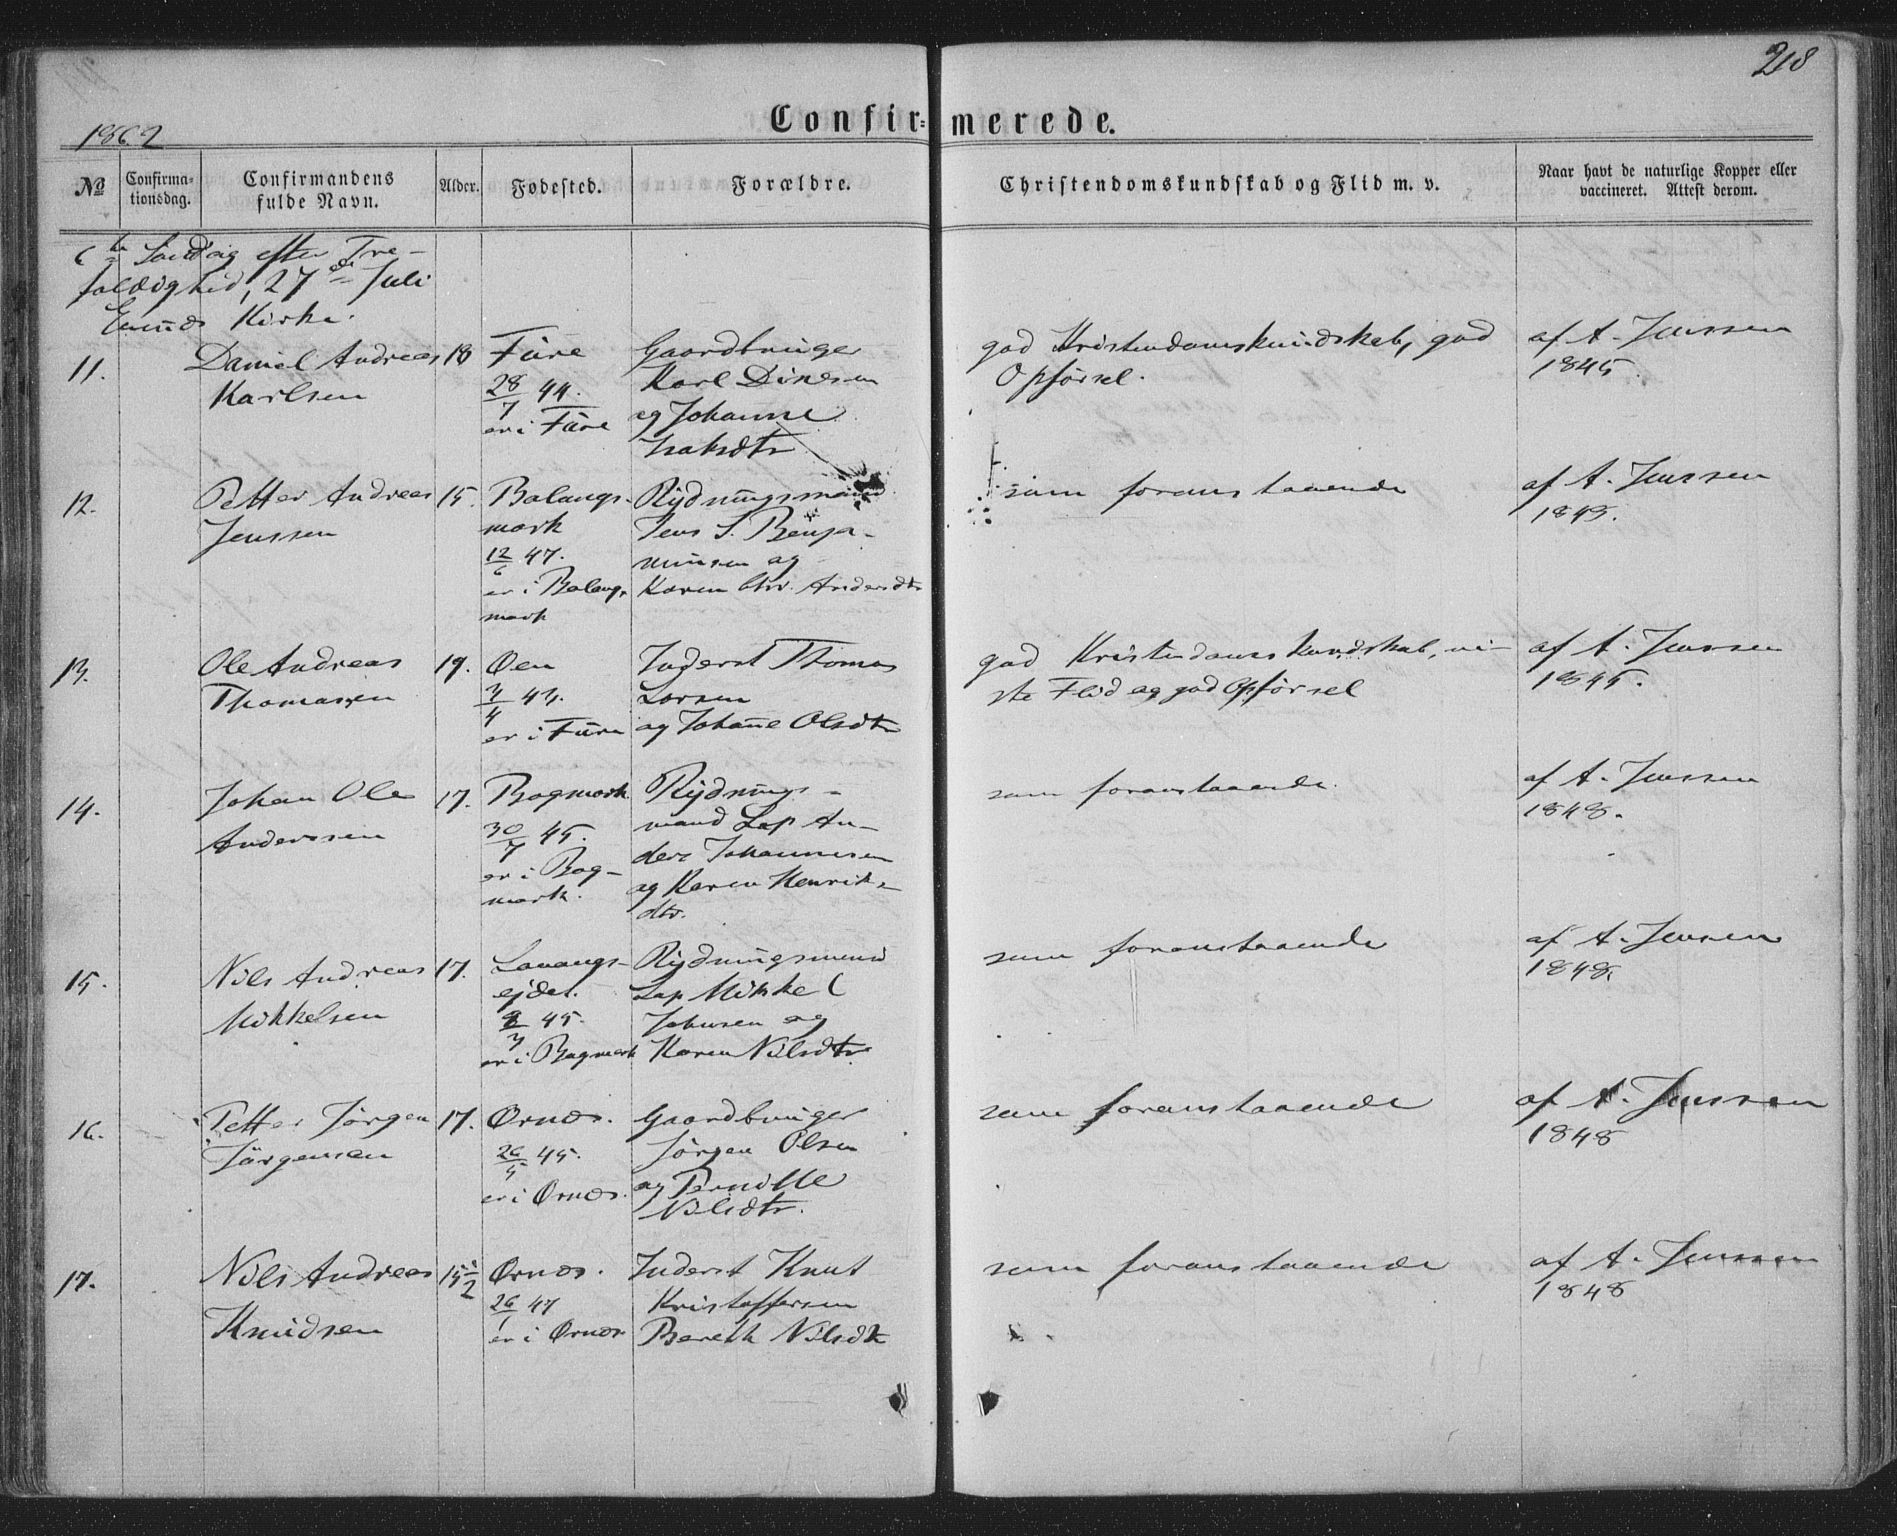 218
Confir- merede.
1862
No
Confirma-
tionsdag.
Confirmandens
fulde Navn.
Alder.
Fødested.
Forældre.
Christendomskundskab og Flid m. v.
Naar havt de naturlige Kopper eller
vaccineret. Attest derom.
6te Søndag efter Tre-
foldighed, 27de Juli
Kirke.
11.
Daniel Andreas
Karlsen
18
Füre
28/7 44.
er i Füre
Gaardbruger
Karl Dinesen
og Johanne
Isaksdtr
god Kristendomskundskab, god
Opførsel.
af A. Jenssen
1845.
12.
Petter Andreas
Jenssen
15.
Balangs-
mark
12/6 47.
er i Balangs-
mark
Rydningsmand
Jens S. Benja-
minsen og
Karen Andersdtr
som foranstaaende
af A. Jenssen
1849.
13.
Ole Andreas
Thomassen
19.
Øen
4/4 43.
er i Füre
Inderst Thomas
Larsen
og Johanne Olsdtr
god Kristendomskundskab, vi-
ste Flid og god Opførsel
af A. Jenssen
1845.
14.
Johan Ole
Anderssen
17.
Bogmark
30/7 45.
er i Bog-
mark.
Rydnings-
mand Lap An-
ders Johannesen
og Karen Henriks-
dtr.
som foranstaaende.
af A. Jenssen
1848.
15.
Nils Andreas
Mikkelsen
17.
Lavangs-
ejdet.
45.
er i Bogmark
Rydningsmand
Lap Mikkel
Johnsen og
Karen Nilsdtr
som foranstaaende
af A. Jenssen
1848.
16.
Petter Jörgen
Jörgensen
17.
Ørnæs.
26/5 45.
er i Ørnæs.
Gaardbruger
Jörgen Olsen
og Pernille
Nilsdtr.
som foranstaaende
af A. Jenssen
1848
17.
Nils Andreas
Knudsen
15 1/2
Ørnæs.
26/1 47
er i Ørnæs
Inderst Knut
Kristoffersen
Bereth Nilsdtr
som foranstaaende
af A. Jenssen
1848